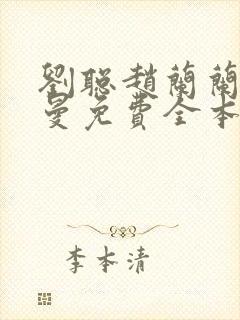 劉聰趙蘭蘭
曼免費全本
李本清